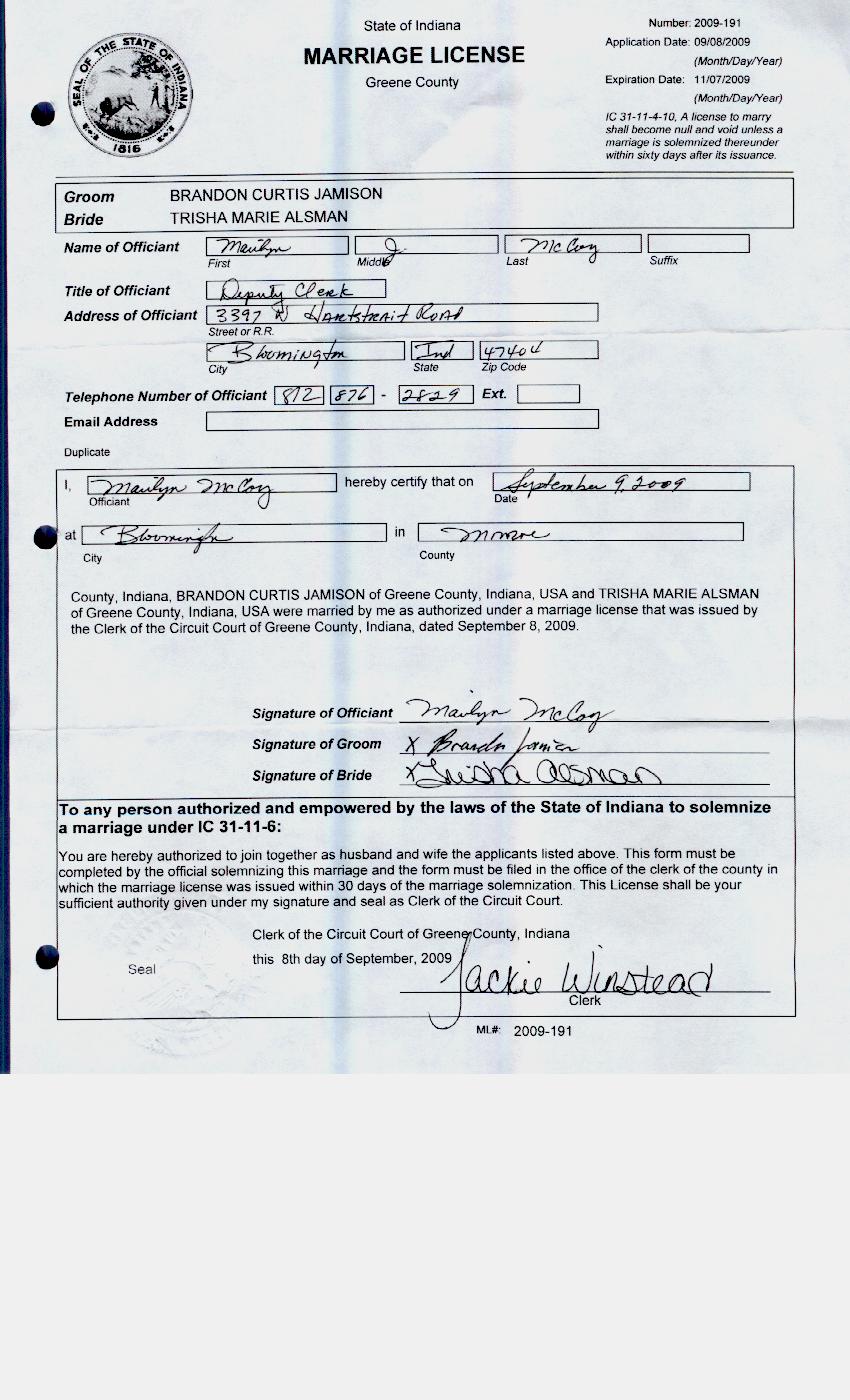 State of Indiana
MARRIAGE LICENSE
Greene County
Number: 2009-191
Application Date: 09/08/2009
(Month/Day/Year)
Expiration Date: 11/07/2009
(Month/Day/Year)
IC 31-11-4-10, A license to marry
shall become null and void unless a
marriage is solemnized thereunder
within sixty days after its issuance.
SEAL OF THE STATE OF INDIANA
1816
Groom BRANDON CURTIS JAMISON
Bride TRISHA MARIE ALSMAN
Name of Officiant Marilyn J. McCoy
First Middle Last Suffix
Title of Officiant Deputy Clerk
Address of Officiant 3397 N Hartstrait Road
Street or R.R.
Bloomington Ind 47404
City State Zip Code
Telephone Number of Officiant 812 876 - 2829 Ext.
Email Address
Duplicate
I, Marilyn McCoy hereby certify that on September 9, 2009
Officiant Date
at Bloomington in Monroe
City County
County, Indiana, BRANDON CURTIS JAMISON of Greene County, Indiana, USA and TRISHA MARIE ALSMAN
of Greene County, Indiana, USA were married by me as authorized under a marriage license that was issued by
the Clerk of the Circuit Court of Greene County, Indiana, dated September 8, 2009.
Signature of Officiant Marilyn McCoy
Signature of Groom X Brandon Jamison
Signature of Bride X Trisha Alsman
To any person authorized and empowered by the laws of the State of Indiana to solemnize
a marriage under IC 31-11-6:
You are hereby authorized to join together as husband and wife the applicants listed above. This form must be
completed by the official solemnizing this marriage and the form must be filed in the office of the clerk of the county in
which the marriage license was issued within 30 days of the marriage solemnization. This License shall be your
sufficient authority given under my signature and seal as Clerk of the Circuit Court.
Clerk of the Circuit Court of Greene County, Indiana
this 8th day of September, 2009 Jackie Winstead
Seal
Clerk
ML#: 2009-191